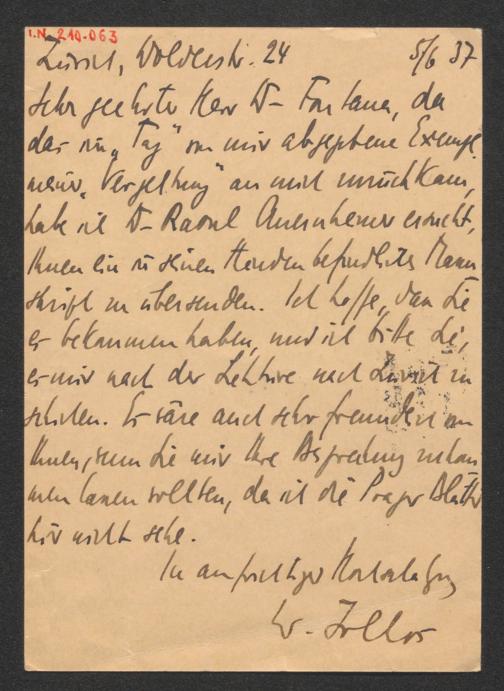 I.N. 210.063
Zürich, Wolderstr. 24 5/6 37
Sehr geehrter Herr Dr Fontana, da
das im „Tag“ von mir abgegebene Exempl.
meiner „Vergeltung“ an mich zurückkam,
habe ich Dr Raoul Auernheimer ersucht,
Ihnen ein in seinen Händen befindliches Manu
skript zu übersenden. Ich hoffe, dass Sie
es bekommen haben, und ich bitte Sie,
es mir nach der Lektüre nach Zürich zu
schicken. Es wäre auch sehr freundlich von
Ihnen, wenn Sie mir Ihre Besprechung zukom
men lassen wollten, da ich die Prager Blätter
hier nicht sehe.
In aufrichtiger Hochschätzung